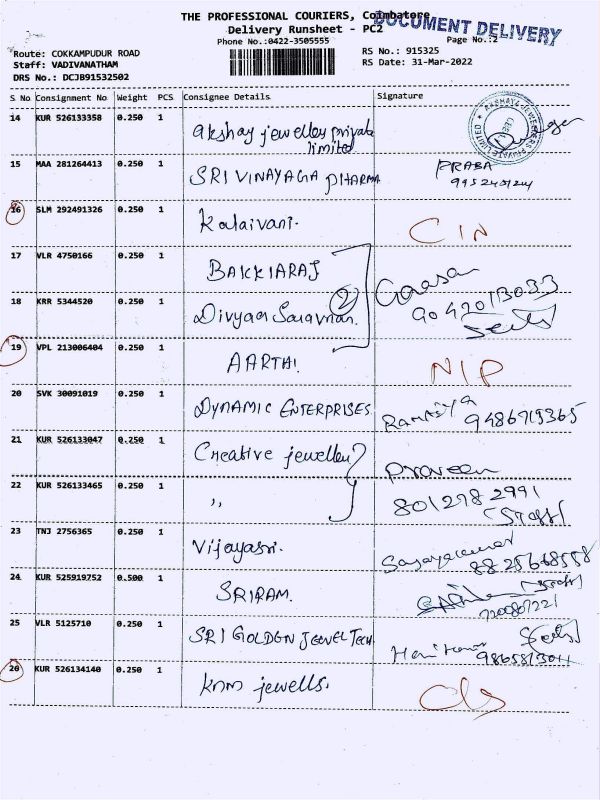 THE PROFESSIONAL COURIERS, Coimbatore
DOCUMENT DELIVERY
Delivery Runsheet - PC2
Phone No.:0422-3505555
Page No.:2
Route: COKKAMPUDUR ROAD
RS No.: 915325
Staff: VADIVANATHAM
RS Date: 31-Mar-2022
DRS No.: DCJB91532502
S No Consignment No Weight PCS Consignee Details Signature
14 KUR 526133358 0.250 1 akshay jewellery private limited
AKSHAYA JEWELLERS PRIVATE LIMITED
15 MAA 281264413 0.250 1 SRI VINAYAGA PHARMA PRABA
16 SLM 292491326 0.250 1 Kalaivani. CIN
17 VLR 4750166 0.250 1 BAKKIARAJ
18 KRR 5344520 0.250 1 Divyaa Saravnan. 2
9042013033
19 VPL 213006404 0.250 1 AARTHI. NIP
20 SVK 30091019 0.250 1 DYNAMIC ENTERPRISES Ramya
21 KUR 526133047 0.250 1 Creative jewellery Praveen
22 KUR 526133465 0.250 1 ,, 8012782991
(Staff)
23 TNJ 2756365 0.250 1 Vijayasri.
8825668558
24 KUR 525919752 0.500 1 SRIRAM. (Staff)
25 VLR 5125710 0.250 1 SRI GOLDEN JEWEL TECH.
26 KUR 526134140 0.250 1 KNM jewells. Cls